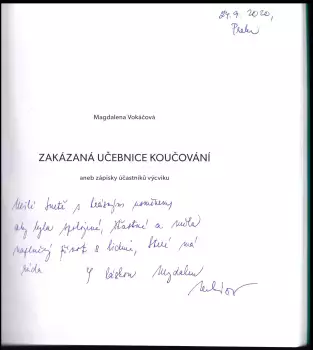 24.9.2020,
Praha
Magdalena Vokáčová
ZAKÁZANÁ UČEBNICE KOUČOVÁNÍ
aneb zápisky účastníků výcviku
Milé s krásným
aby byla spokojená, šťastná a měla
naplněný život s lidmi, které má
ráda S láskou Magdalena